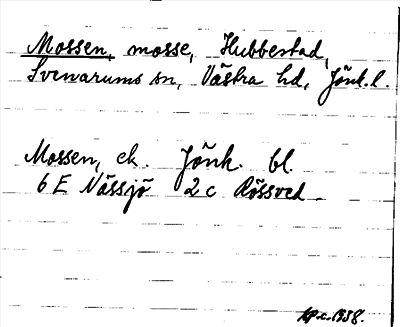 Mossen, mosse, Hubbestad,
Svenarums sn, Västra hd, Jönk.l.
Mossen, ek. Jönk. bl.
6 E Nässjö 2 c Rössved
1958.